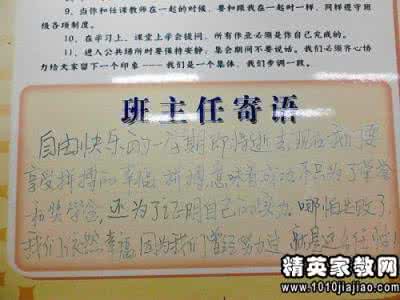 9、当你和任课教师在一起的时候，要和跟我在一起时一样，同样遵守班级各项制度。
10、在学习上，课堂上学会提问，所有作业必须是你自己完成的。
11、进入公共场所时要保持安静；集会期间不要说话。我们必须齐心协力给大家留下一个印象——我们是一个集体，我们步调一致。
班主任寄语
自由快乐的一 期即将逝去 现在我们要
享受拼搏的幸福 拼搏意味着成功 不只为了荣誉
和奖学金，还为了证明自己的 哪怕失败了
我们依然幸福，因为我们曾经努力过
精英家教网
www.1010jiajiao.com